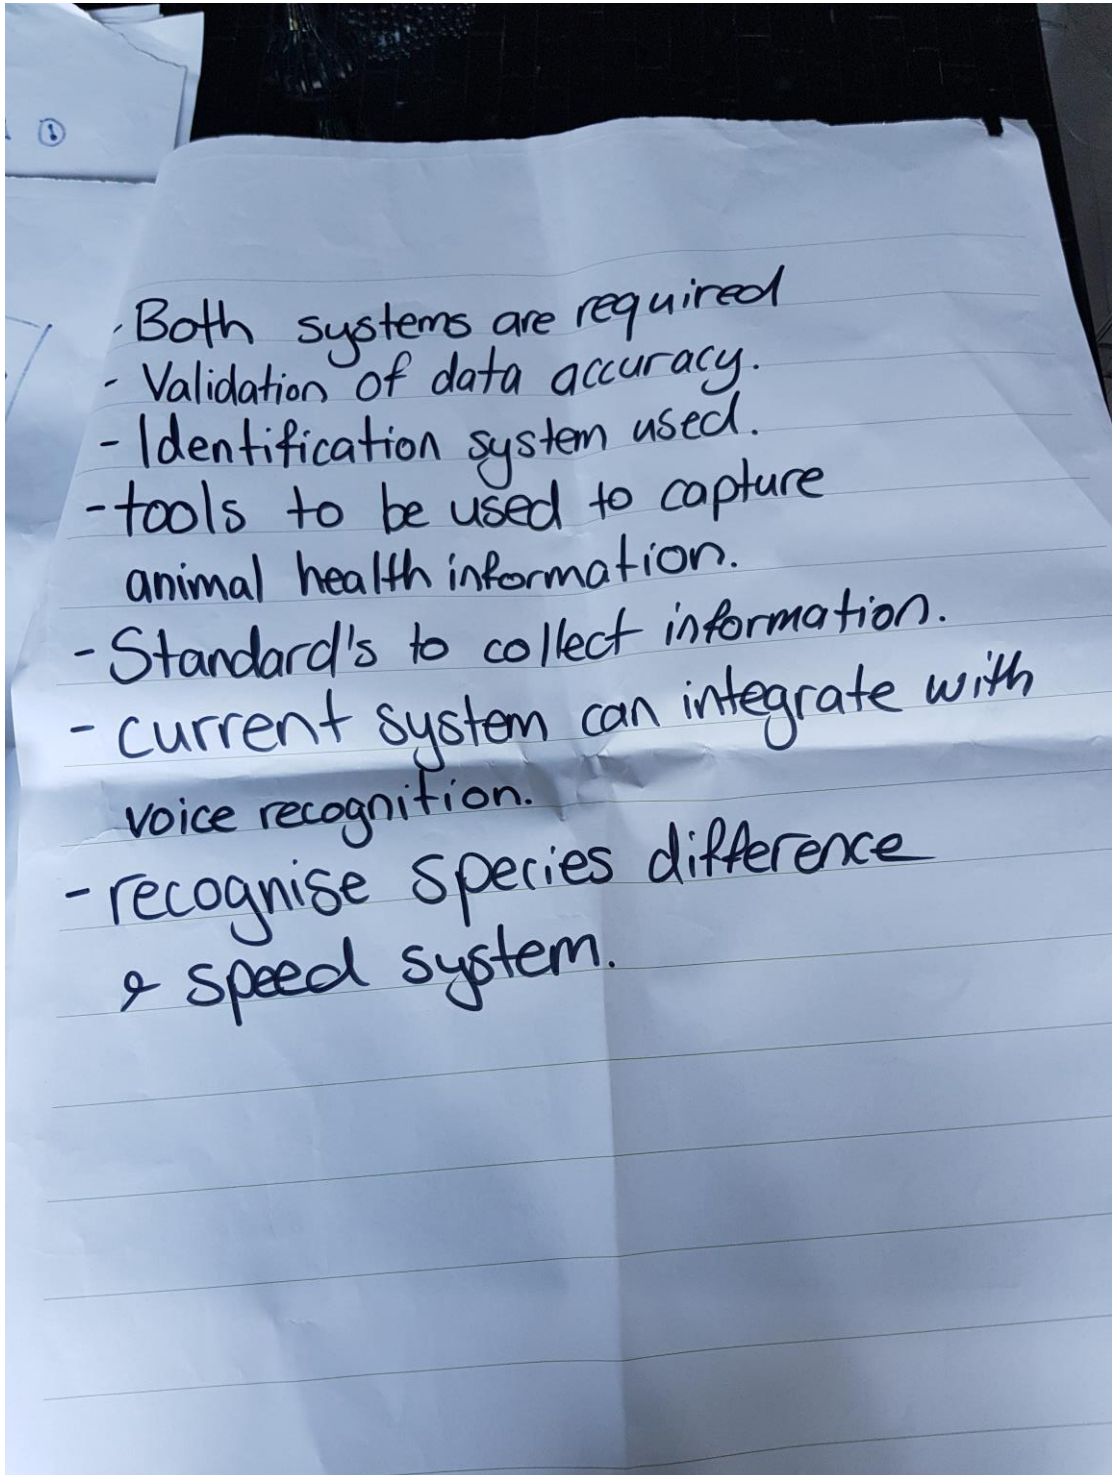 ①
· Both systems are required
- Validation of data accuracy.
- Identification system used.
- tools to be used to capture
animal health information.
- Standard's to collect information.
- current system can integrate with
voice recognition.
- recognise species difference
& speed system.